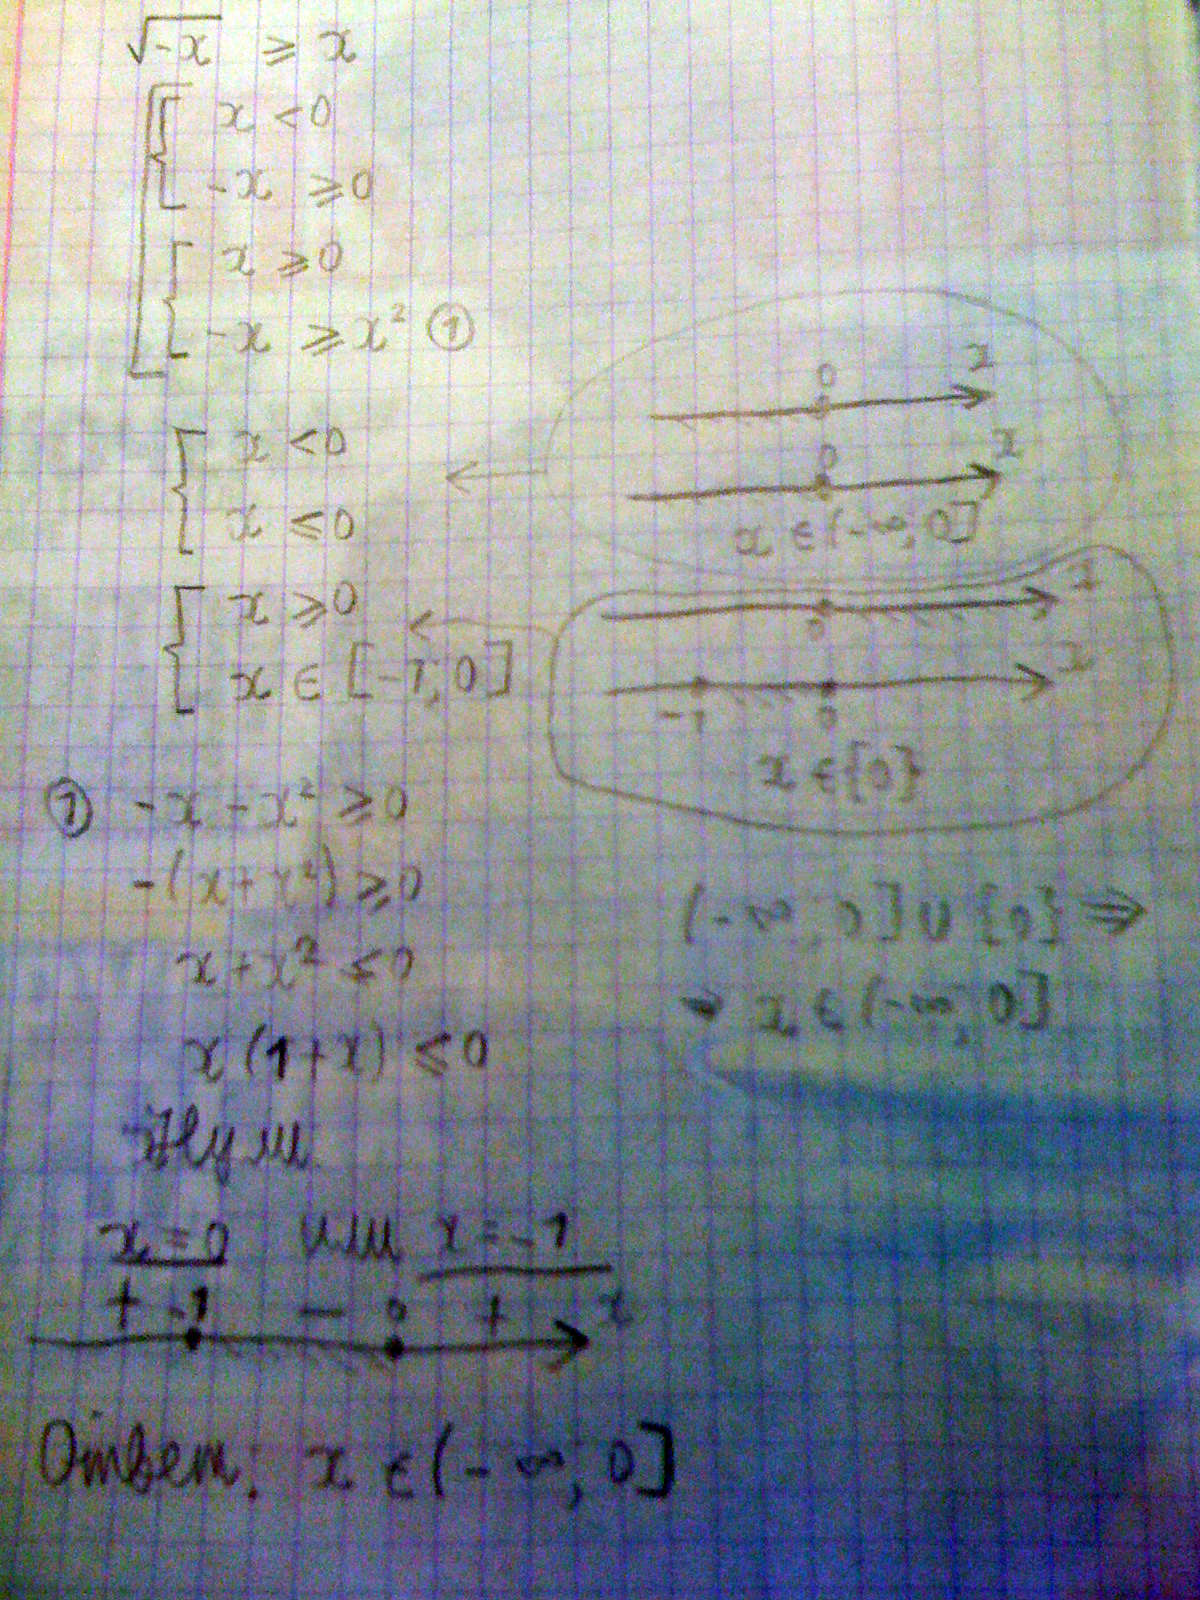 √-x ≥ x
x < 0
-x ≥ 0
x ≥ 0
-x ≥ x² ①
x < 0
x ≤ 0
x ≥ 0
x ∈ [-1, 0]
0 x
0 x
x ∈ (-∞, 0]
0 x
-1 0 x
x ∈ {0}
① -x - x² ≥ 0
-(x+x²) ≥ 0
x+x² ≤ 0
x(1+x) ≤ 0
Нули
x=0 или x=-1
+ -1 - 0 + x
(-∞, 0] ∪ {0} ⇒
⇒ x ∈ (-∞, 0]
Ответ: x ∈ (-∞, 0]